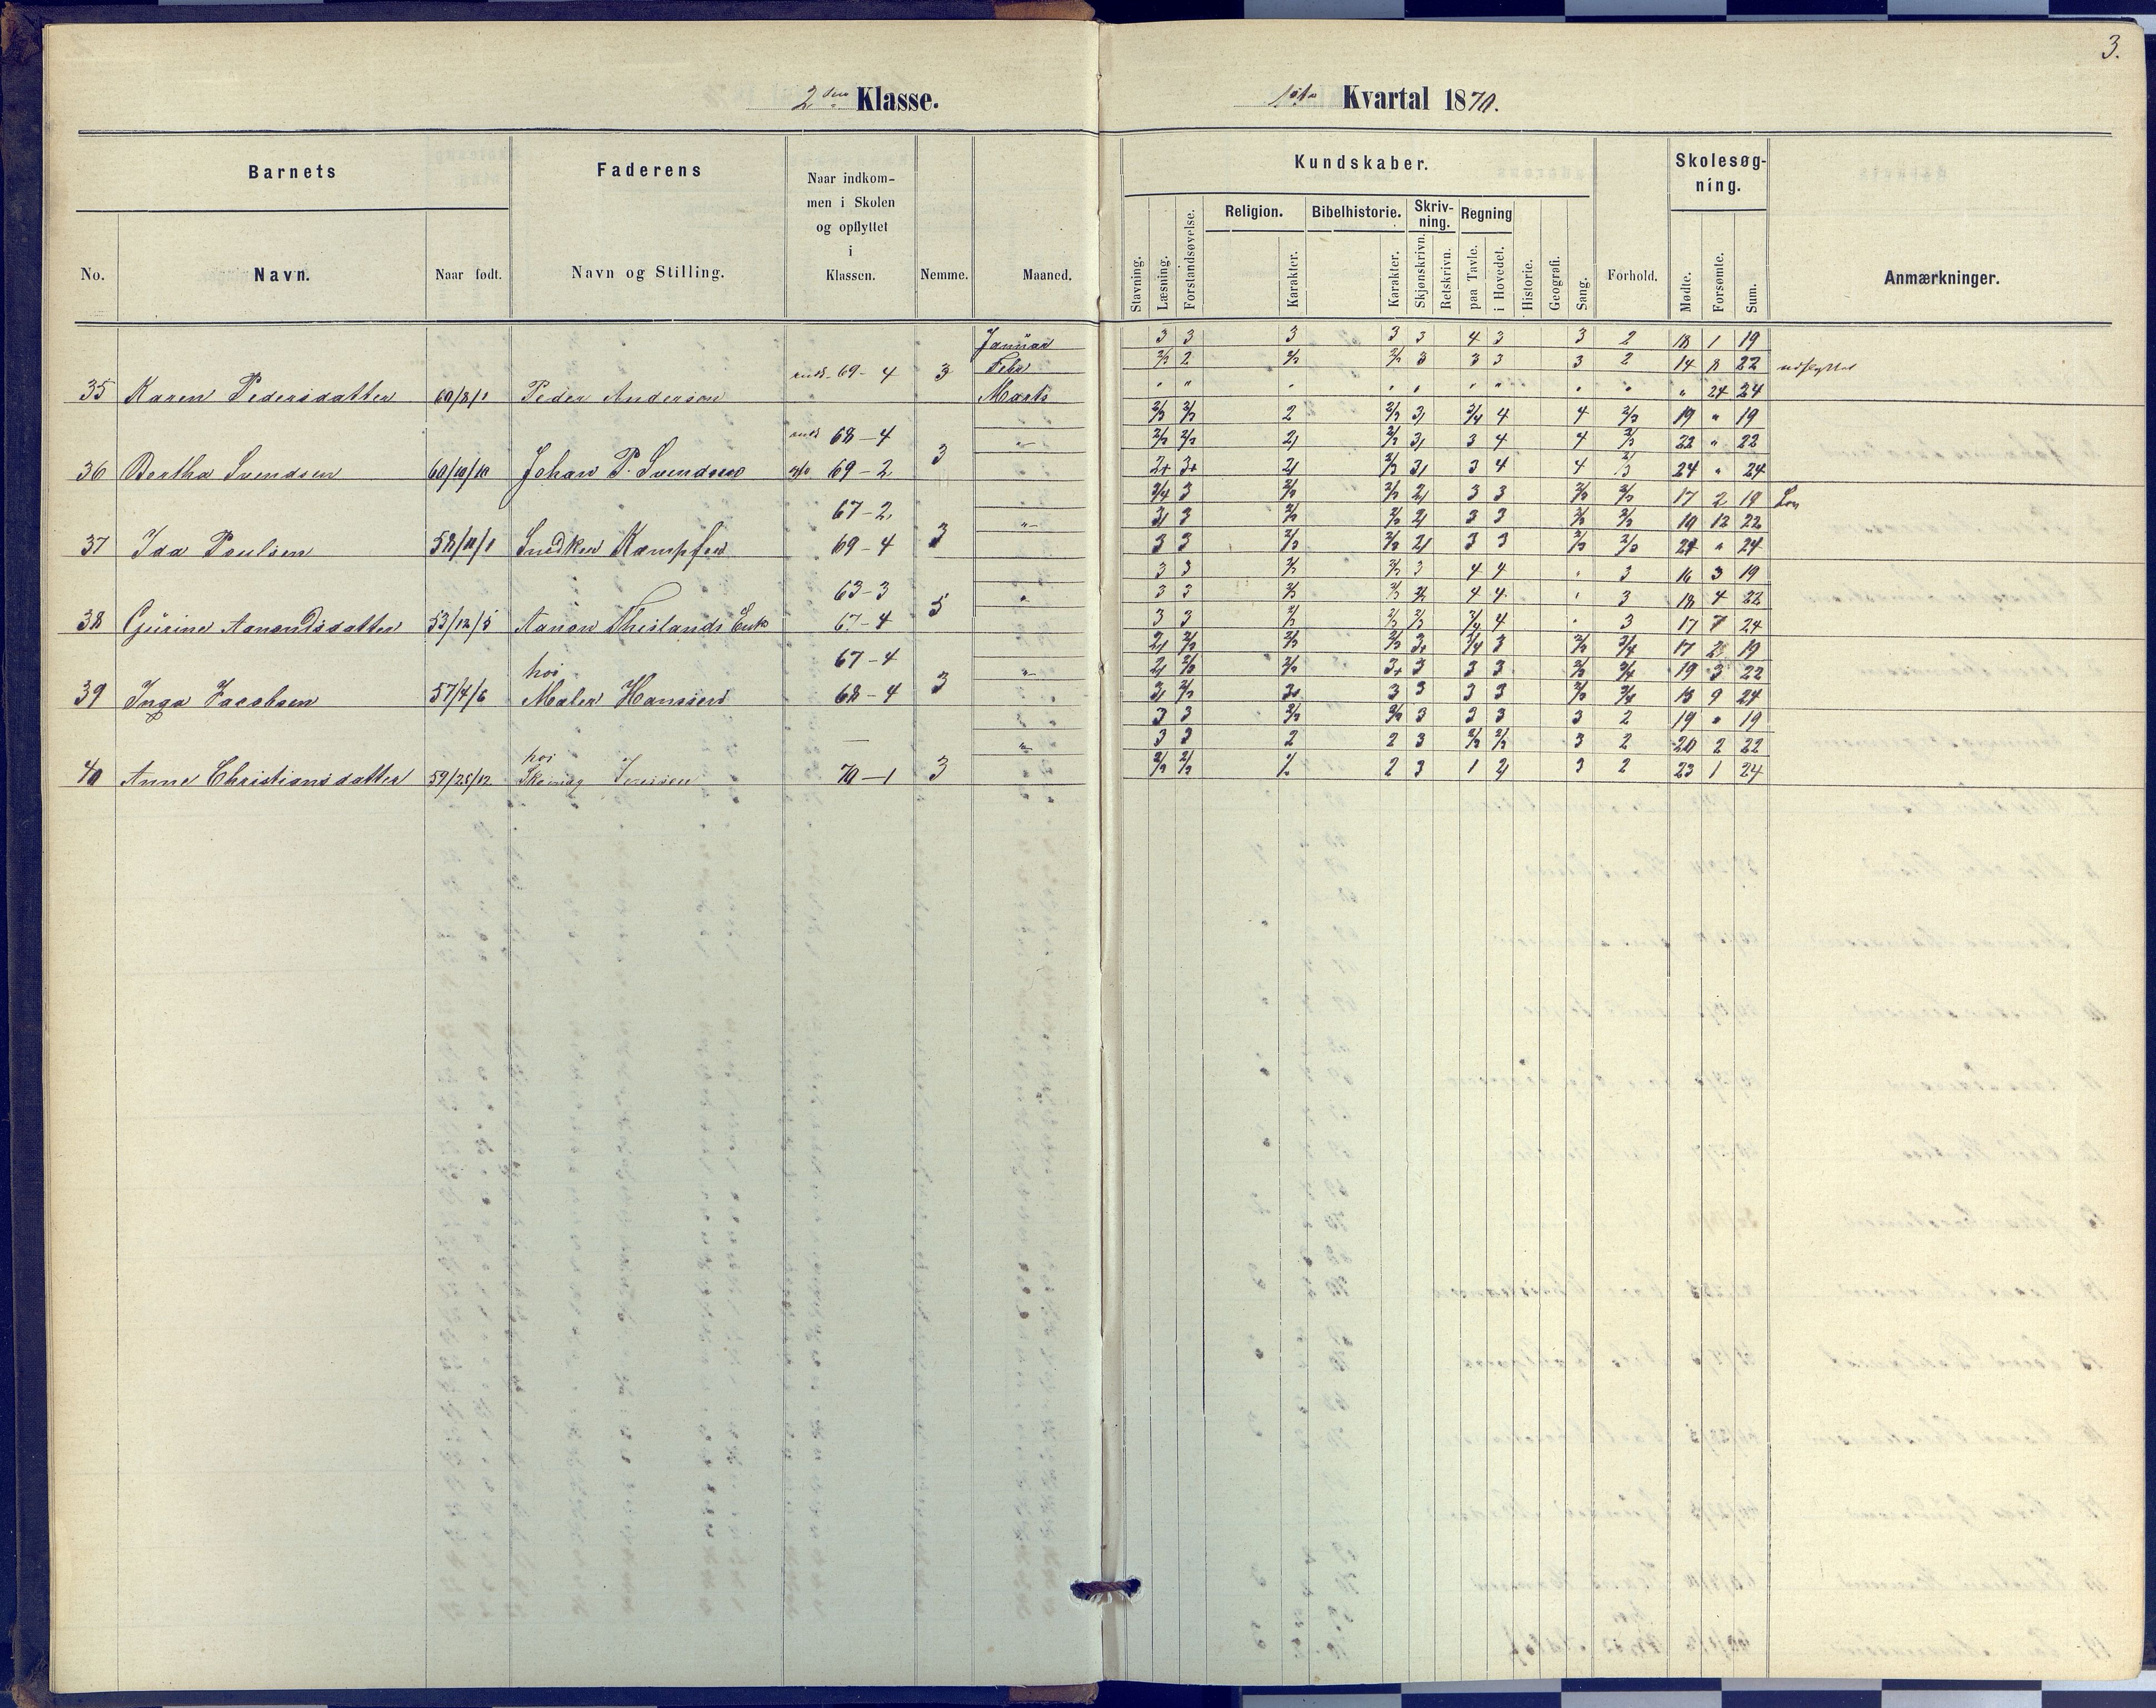 3.
2den Klasse.
1ste Kvartal 1870.
Barnets
Faderens
Naar indkom-
men i Skolen
og opflyttet
i
Klassen.
No.
Navn.
Naar født.
Navn og Stilling.
Nemme.
Maaned.
Kundskaber.
Skolesøg-
ning.
Religion.
Bibelhistorie.
Skriv-
ning.
Regning
Stavning.
Læsning.
Forstandsøvelse.
Karakter.
Karakter.
Skjønskrivn.
Retskrivn.
paa Tavle.
i Hovedet.
Historie.
Geografi.
Sang.
Forhold.
Mødte.
Forsømte.
Sum.
Anmærkninger.
Januar 3 3 3 3 3 4 3 3 2 18 1 19
69-4 3 Febr 2/3 2 2/3 2/3 3 3 3 3 2 14 8 22 udflyttet
35 Karen Pedersdatter 60/8/1 Peder Anderson Marts " " " " " " " " " " 24 24
2/3 2/3 2 2/3 3 3/4 4 4 2/3 19 " 19
68-4 3 " 2/3 2/3 2 2/3 3 3 4 4 2/3 22 " 22
36 Bertha Svendsen 60/10/10 Johan P. Svendsen 69-2 2+ 3+ 2 2/3 3 3 4 4 2/3 24 " 24
67-2 3/4 3 2/3 2/3 2 3 3 2/3 2/3 17 2 19
3 " 3 3 2/3 2/3 2 3 3 2/3 2/3 10 12 22
37 Ida Poulsen 58/11/1 Snedker Kampfer 69-4 3 3 2/3 2/3 2 3 3 2/3 2/3 24 " 24
63-3 3 3 2/3 2/3 3 4 4 " 3 16 3 19
5 " 3 3 2/3 2/3 2/3 4 4 " 3 18 4 22
38 Gurine Aanondsdatter 53/12/5 Aanon Theislands Enk 67-4 3 3 2/3 2/3 2/3 3/4 4 " 3 17 7 24
67-4 2 2/3 2/3 2/3 3+ 3/4 3 2/3 3/4 17 2 19
hos 3 " 2 2/3 2/3 3+ 3 3 3 2/3 3/4 19 3 22
39 Inga Jacobsen 57/4/6 Maler Hanssen 68-4 3 2/3 3+ 3 3 3 3 2/3 3/4 15 9 24
3 3 2/3 2/3 3 3 3 3 2 19 " 19
hos " 3 3 2 2 3 2/3 2/3 3 2 20 2 22
40 Anne Christiansdatter 59/28/12 Skomag Iversen 70-1 3 2/3 2/3 2 3 1 2 3 2 23 1 24